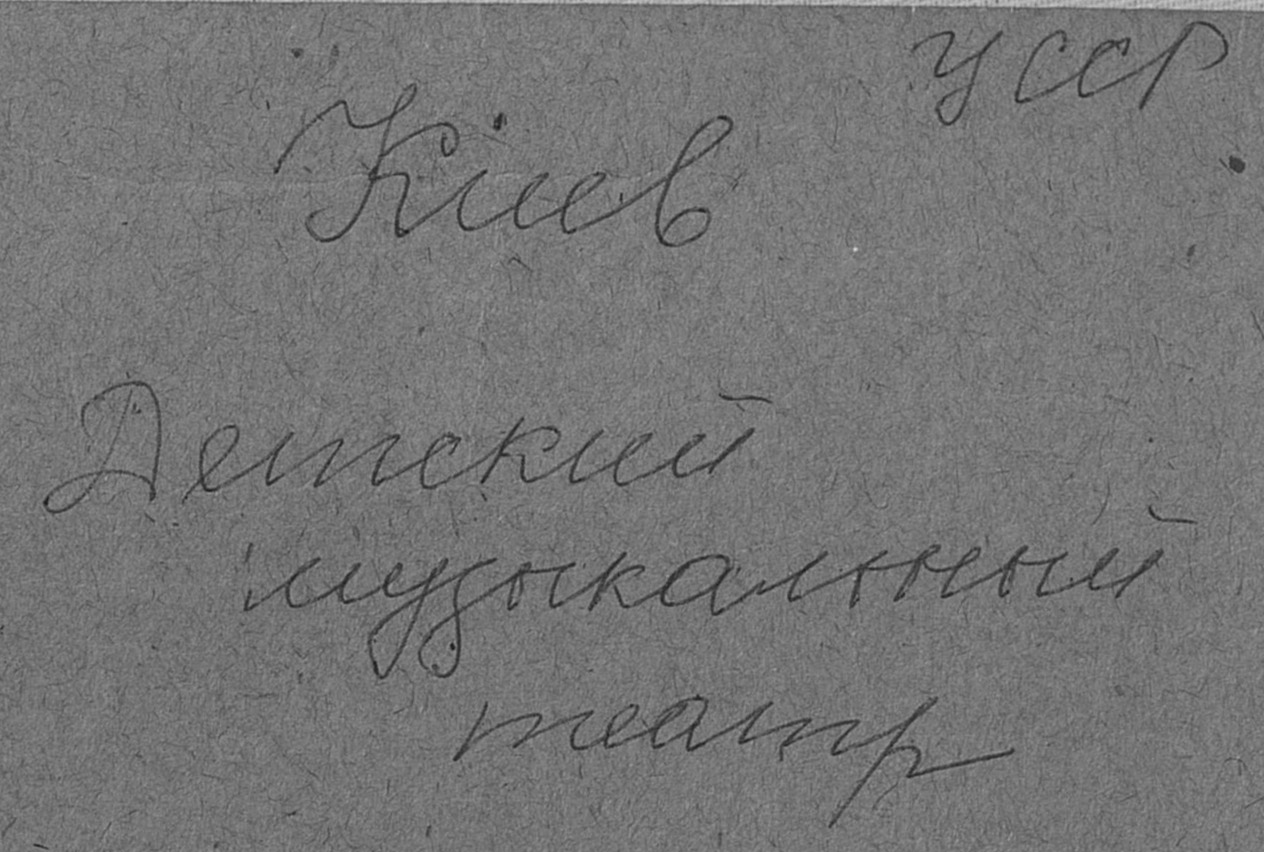 УССР
Киев
Детский
музыкальный
театр